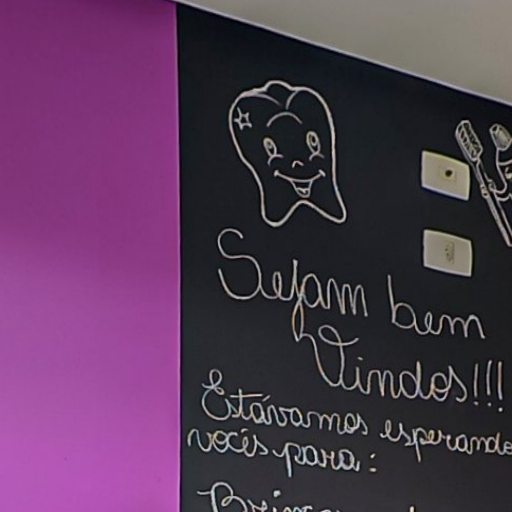 Sejam bem
Vindos!!!
Estávamos esperando
vocês para: